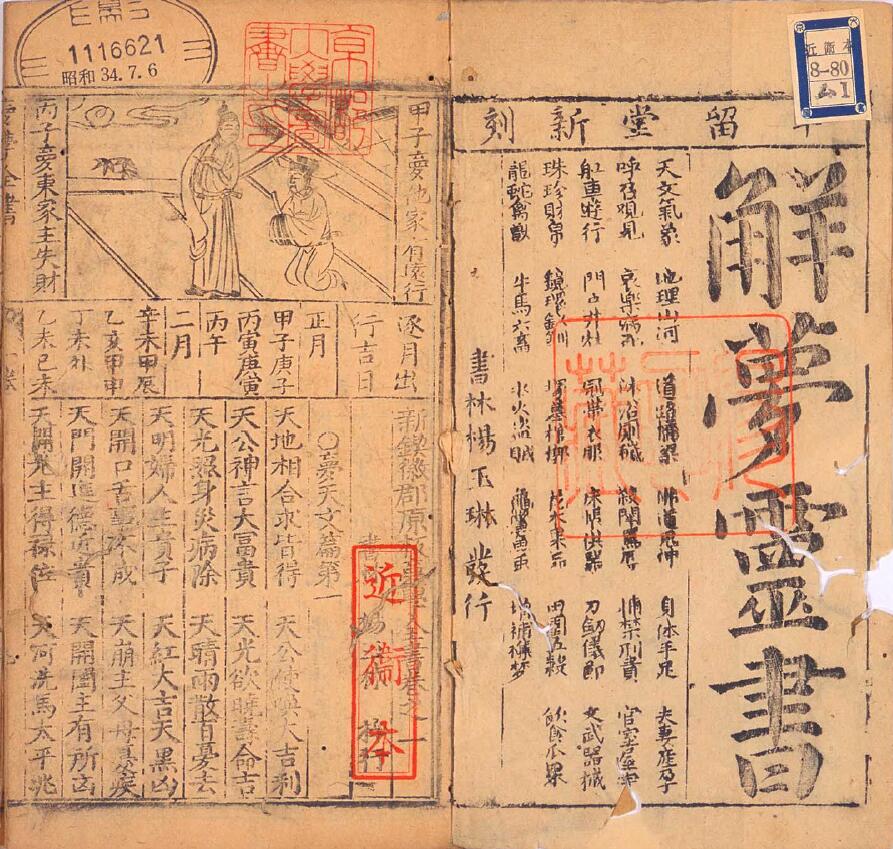 留堂新刻
解夢靈書
天文氣象 地理山河 道路橋梁 佛道鬼神 身体手足 夫妻產孕
呼召觀見 哀樂病死 沐浴廁穢 殺鬪罵辱 捕禁刑責 官室屋宇
舡車遊行 門戶井灶 冠帶衣服 床帳供器 刀劒儀節 文武器械
珠珍財帛 鏡環釵釧 塚墓棺槨 花木菓品 田園五穀 飲食瓜果
龍蛇禽獸 牛馬六畜 水火盜賊 增補禳夢
書林楊玉琳發行
8-80
昭和34.7.6
1116621
近衞本
甲子夢他家有遠行
丙子夢東家主失財
逐月出
行吉日
正月
甲子庚子
丙寅庚寅
丙午
二月
辛未甲辰
乙亥甲申
丁未
乙未己未
新鍥徽郡原板夢學全書卷之一
○夢天文篇第一
天地相合求皆得 天公使喚大吉利
天公神言大富貴 天光欲曉壽命吉
天光照身災病除 天晴雨散百憂去
天明婦人生貴子 天紅大吉天黑凶
天開口舌事不成 天崩主父母憂疾
天門開 天開闔主有所凶
天開光主得祿位 天河洗馬太平兆